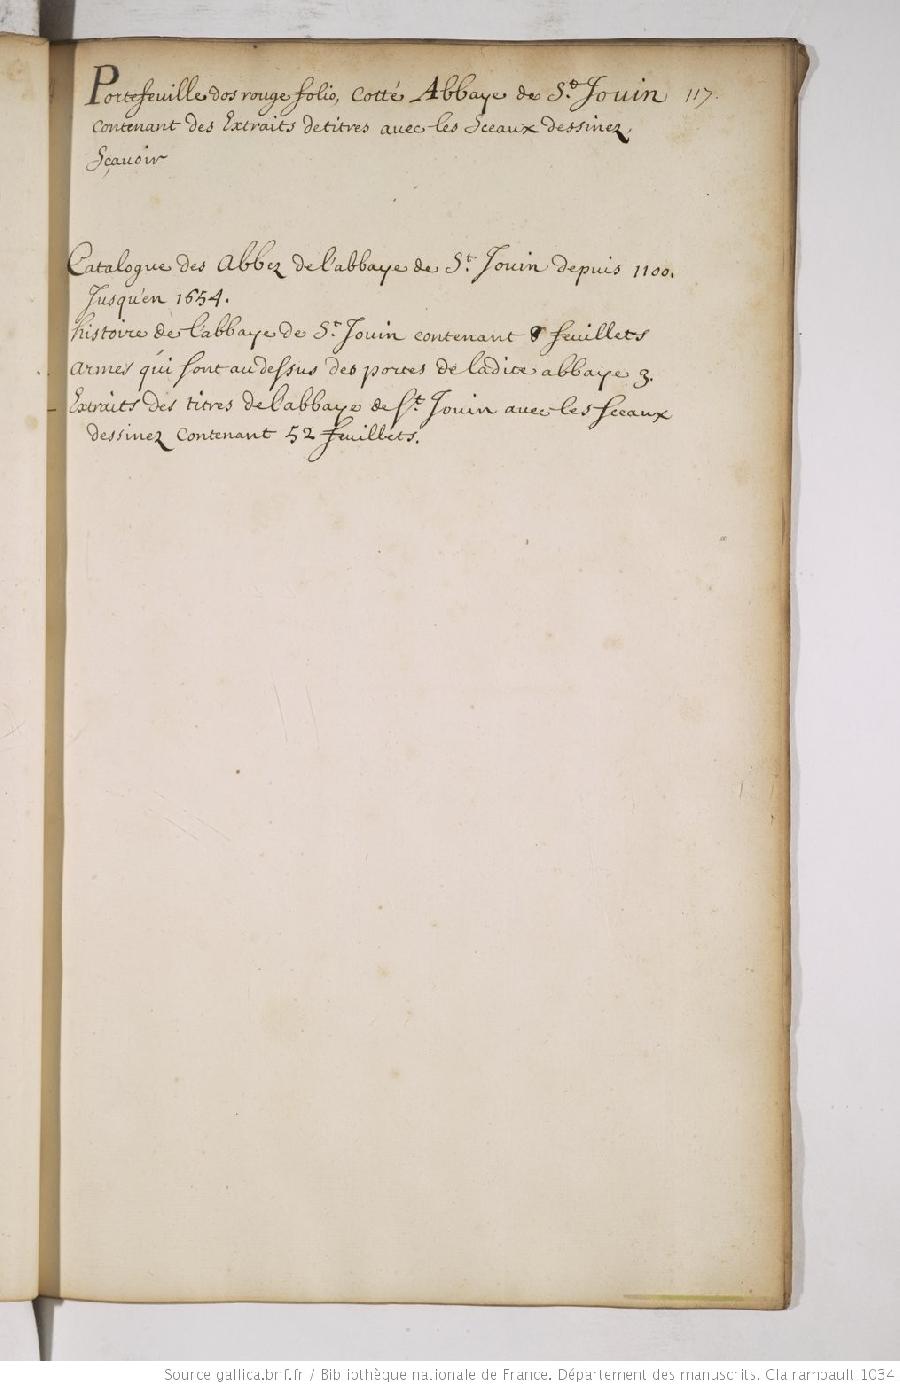 Portefeuille dos rouge folio, Cotté Abbaye de St. Jouin 117.
contenant des Extraits de titres avec les Sceaux dessinez,
Sçavoir
Catalogue des Abbez de l'abbaye de St. Jouin depuis 1100.
Jusqu'en 1654.
histoire de l'abbaye de St. Jouin contenant 8 feuillets
Armes qui sont au dessus des portes de ladite abbaye 3.
Extraits des titres de l'abbaye de St. Jouin avec les sceaux
dessinez contenant 52 feuillets.
Source gallica.bnf.fr / Bibliothèque nationale de France. Département des manuscrits. Clairambault 1034